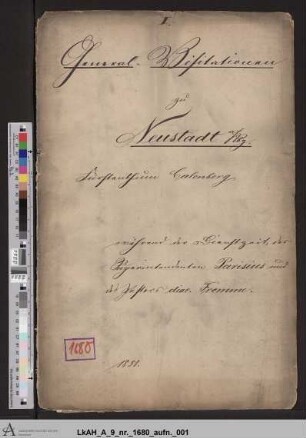 I.
General-Visitationen
zu
Neustadt a/Rg.
Fürstenthum Calenberg.
während der Dienstzeit des
Superintendenten Parisius und
des Pastors diac. Fromme.
1680
1851.
LkAH_A_9_nr._1680_aufn._001